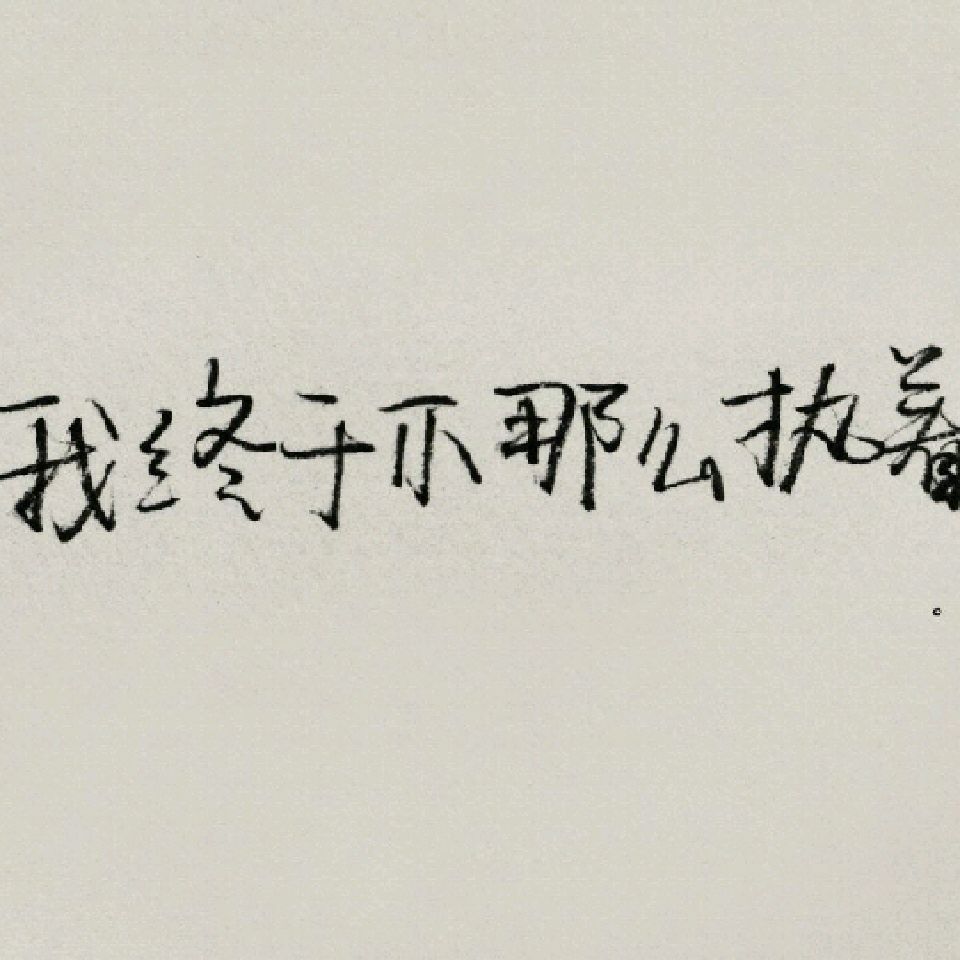 我终于不那么执着
。